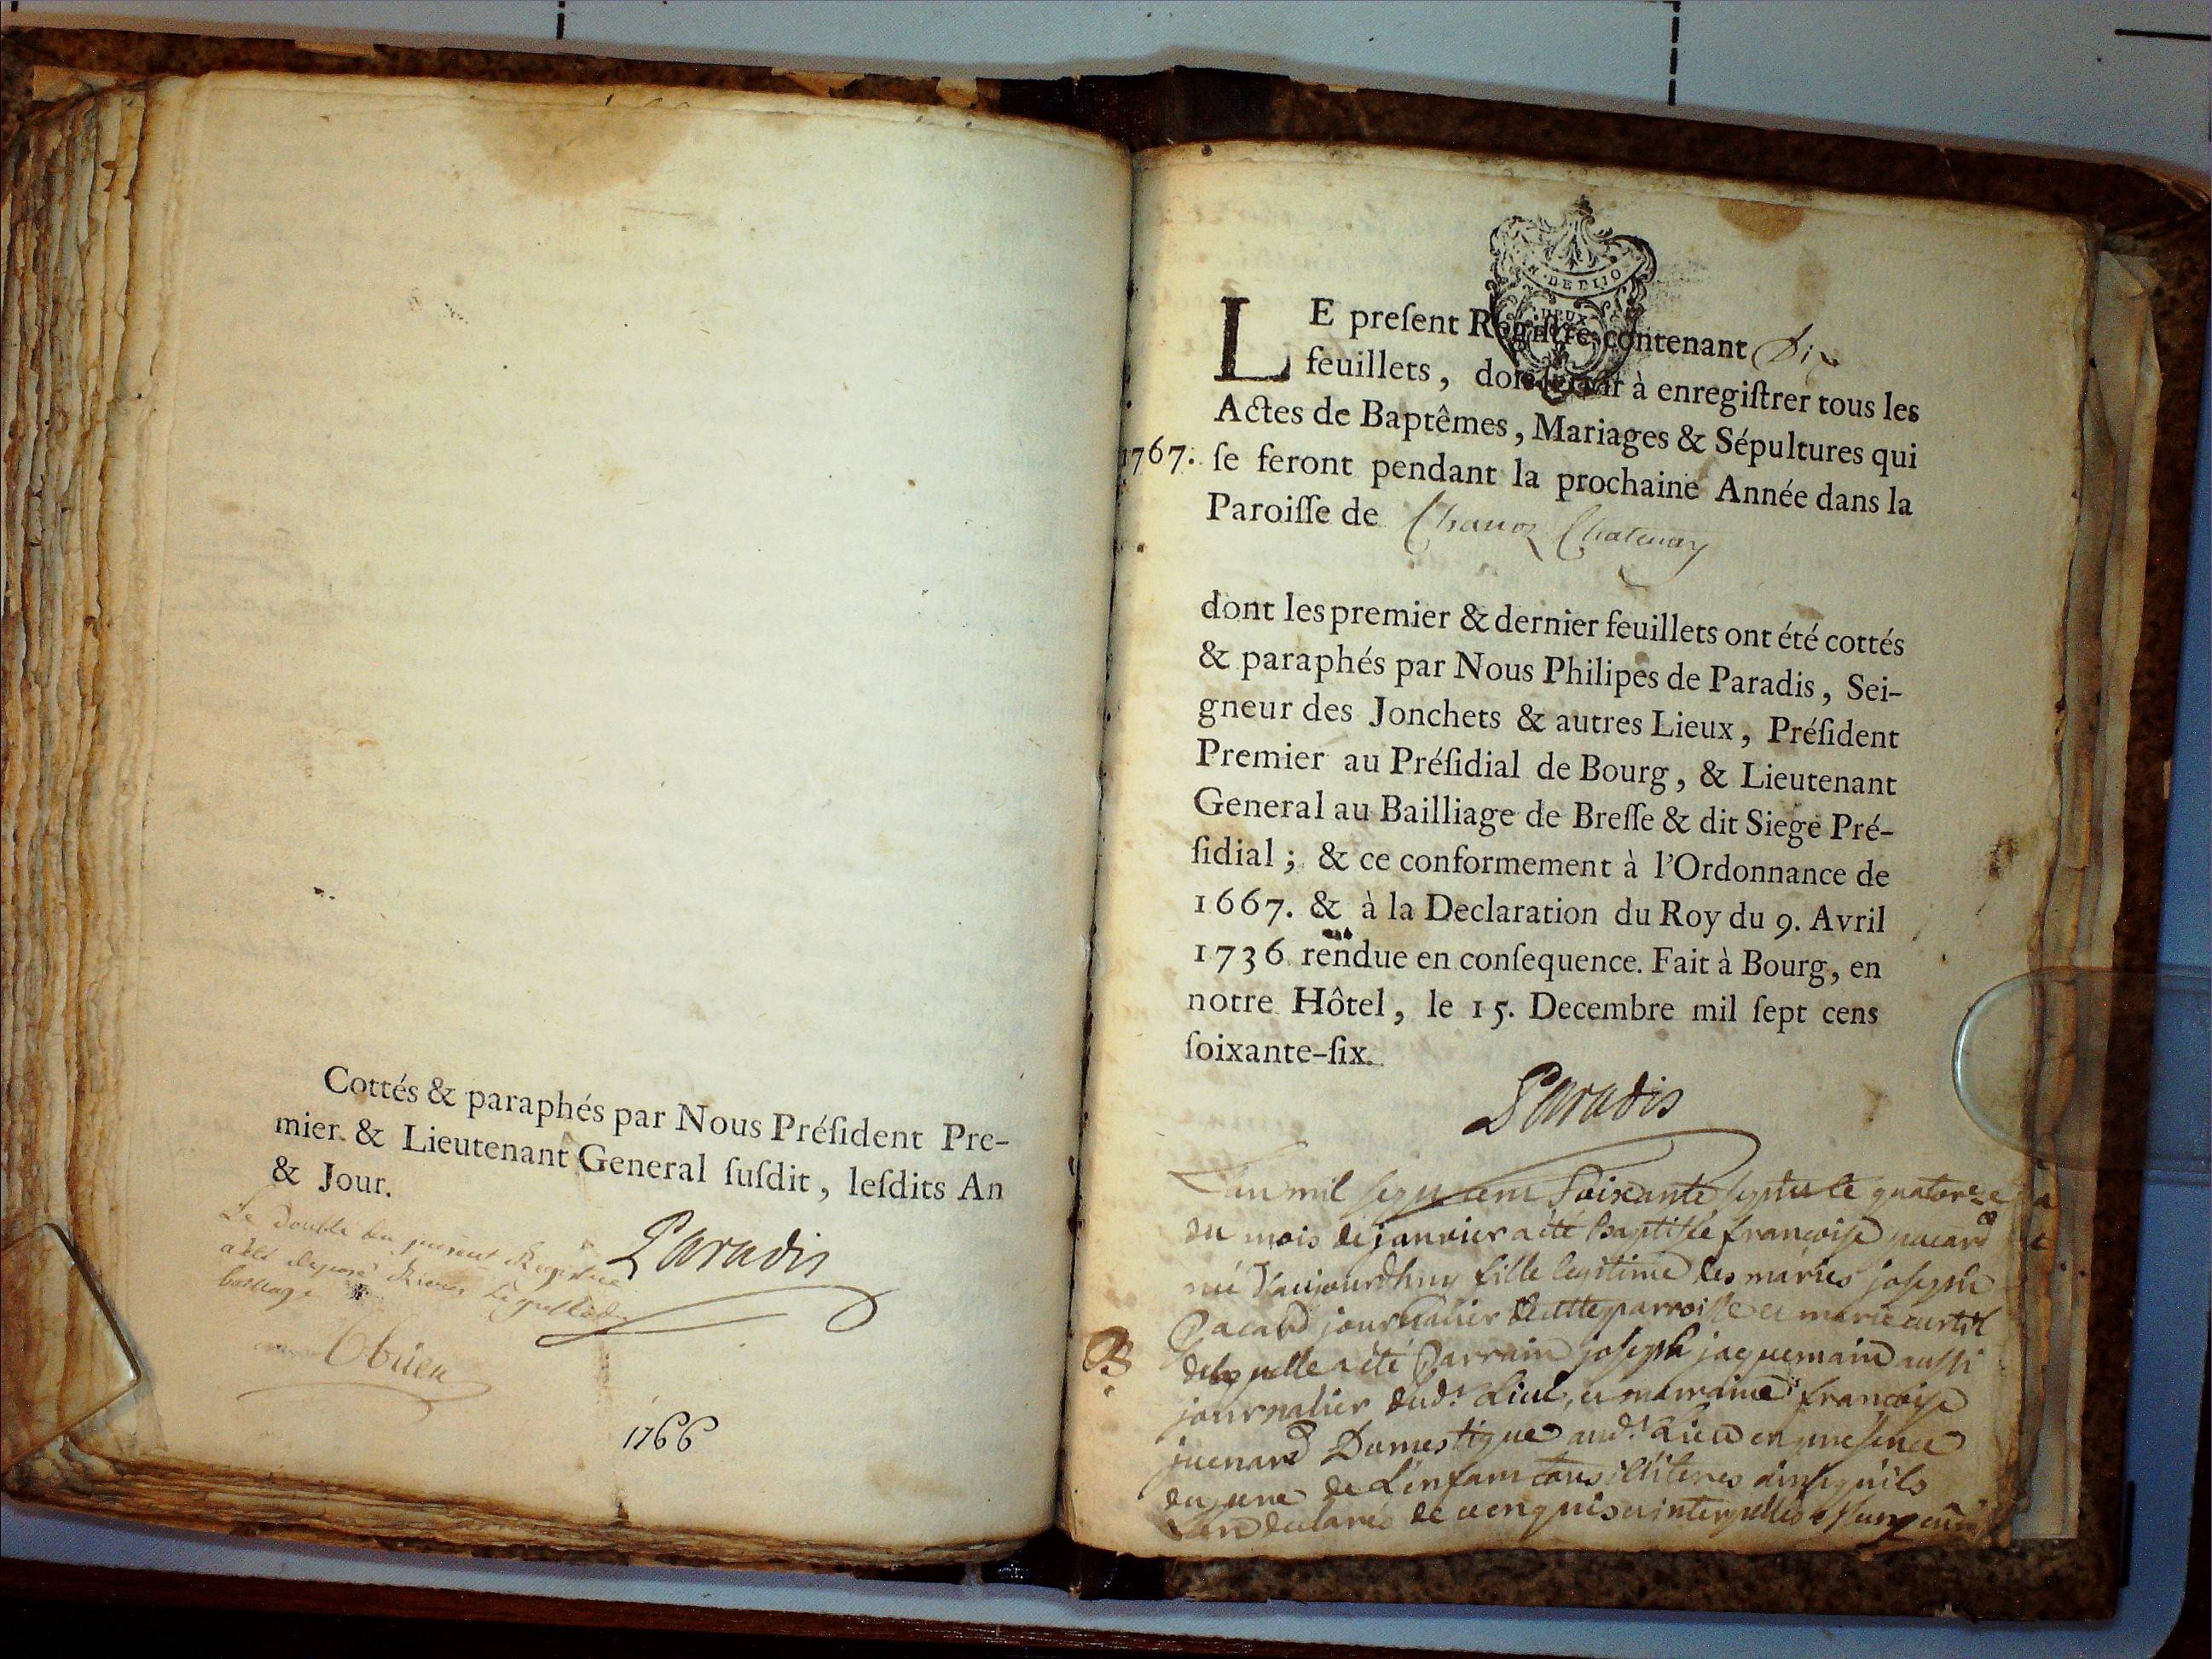 Cottés & paraphés par Nous Préſident Pre-
mier & Lieutenant General ſuſdit, leſdits An
& Jour.
Le double du present Registre
a été deposé
bailliage
Paradis
1766
N. DE DIJO
DEUX
LE preſent Regiſtre, contenant Dix
feuillets, doit ſervir à enregiſtrer tous les
Actes de Baptêmes, Mariages & Sépultures qui
1767. ſe feront pendant la prochaine Année dans la
Paroiſſe de Chanoz Chatenay
dont les premier & dernier feuillets ont été cottés
& paraphés par Nous Philipes de Paradis, Sei-
gneur des Jonchets & autres Lieux, Préſident
Premier au Préſidial de Bourg, & Lieutenant
General au Bailliage de Breſſe & dit Siege Pré-
ſidial; & ce conformement à l'Ordonnance de
1667. & à la Declaration du Roy du 9. Avril
1736 rendue en conſequence. Fait à Bourg, en
notre Hôtel, le 15. Decembre mil ſept cens
ſoixante-ſix.
Paradis
L'an mil sept cent soixante sept et le quatorze
du mois de janvier a été baptisée françoise pacard
née d'aujourdhuy fille legitime des mariés joseph
Pacard journalier de cette parroisse et marie curtil
B
de laquelle a été Parrain joseph jaquemain aussi
journalier dud.t Lieu, et marraine françoise
juenard Domestique aud.t Lieu en presence
du pere de L'enfant tous illiteres ainsi qu'ils
l'on declaré de ce enquis et interpellés